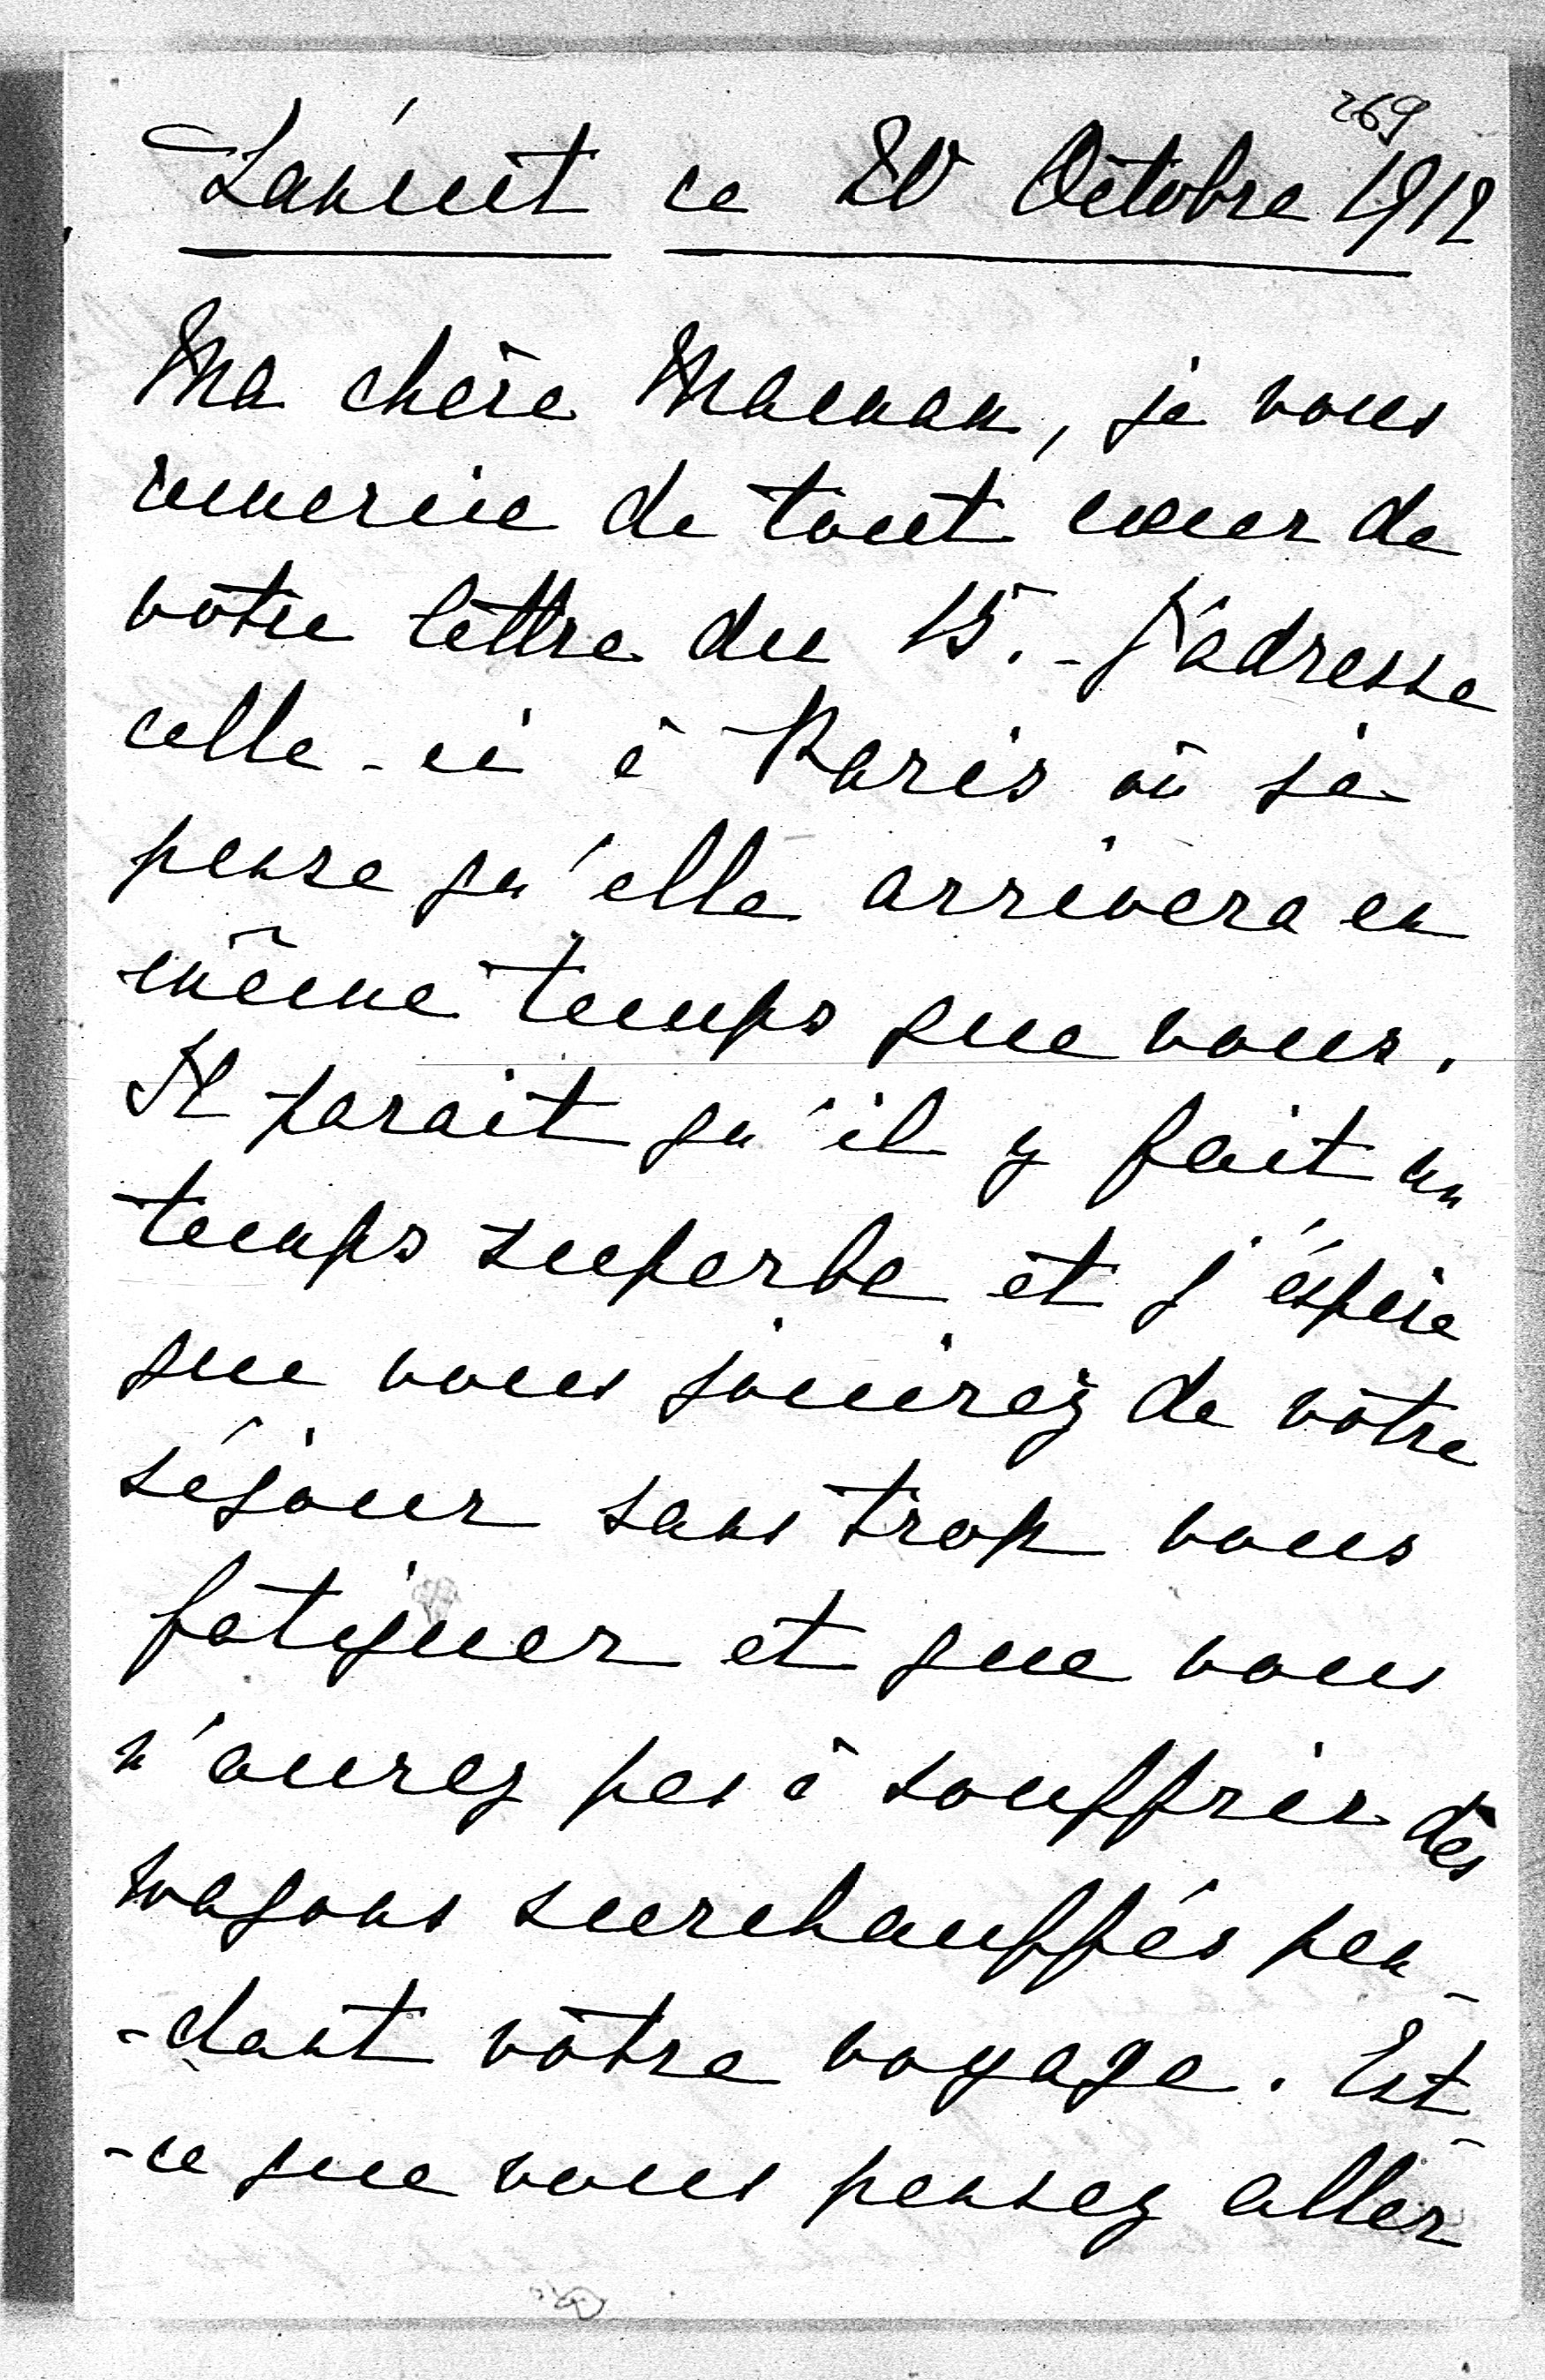 269
Łańcut ce 20 Octobre 1912
Ma chère Maman, je vous
remercie de tout coeur de
votre lettre du 15. - J'adresse
celle-ci à Paris où je
pense qu'elle arrivera en
même temps que vous.
Il parait qu'il y fait un
temps superbe et j'éspère
que vous jouirez de votre
séjour sans trop vous
fatiguer et que vous
n'aurez pas à souffrir des
wagons surchauffés pen-
-dant votre voyage. Est-
-ce que vous pensez aller